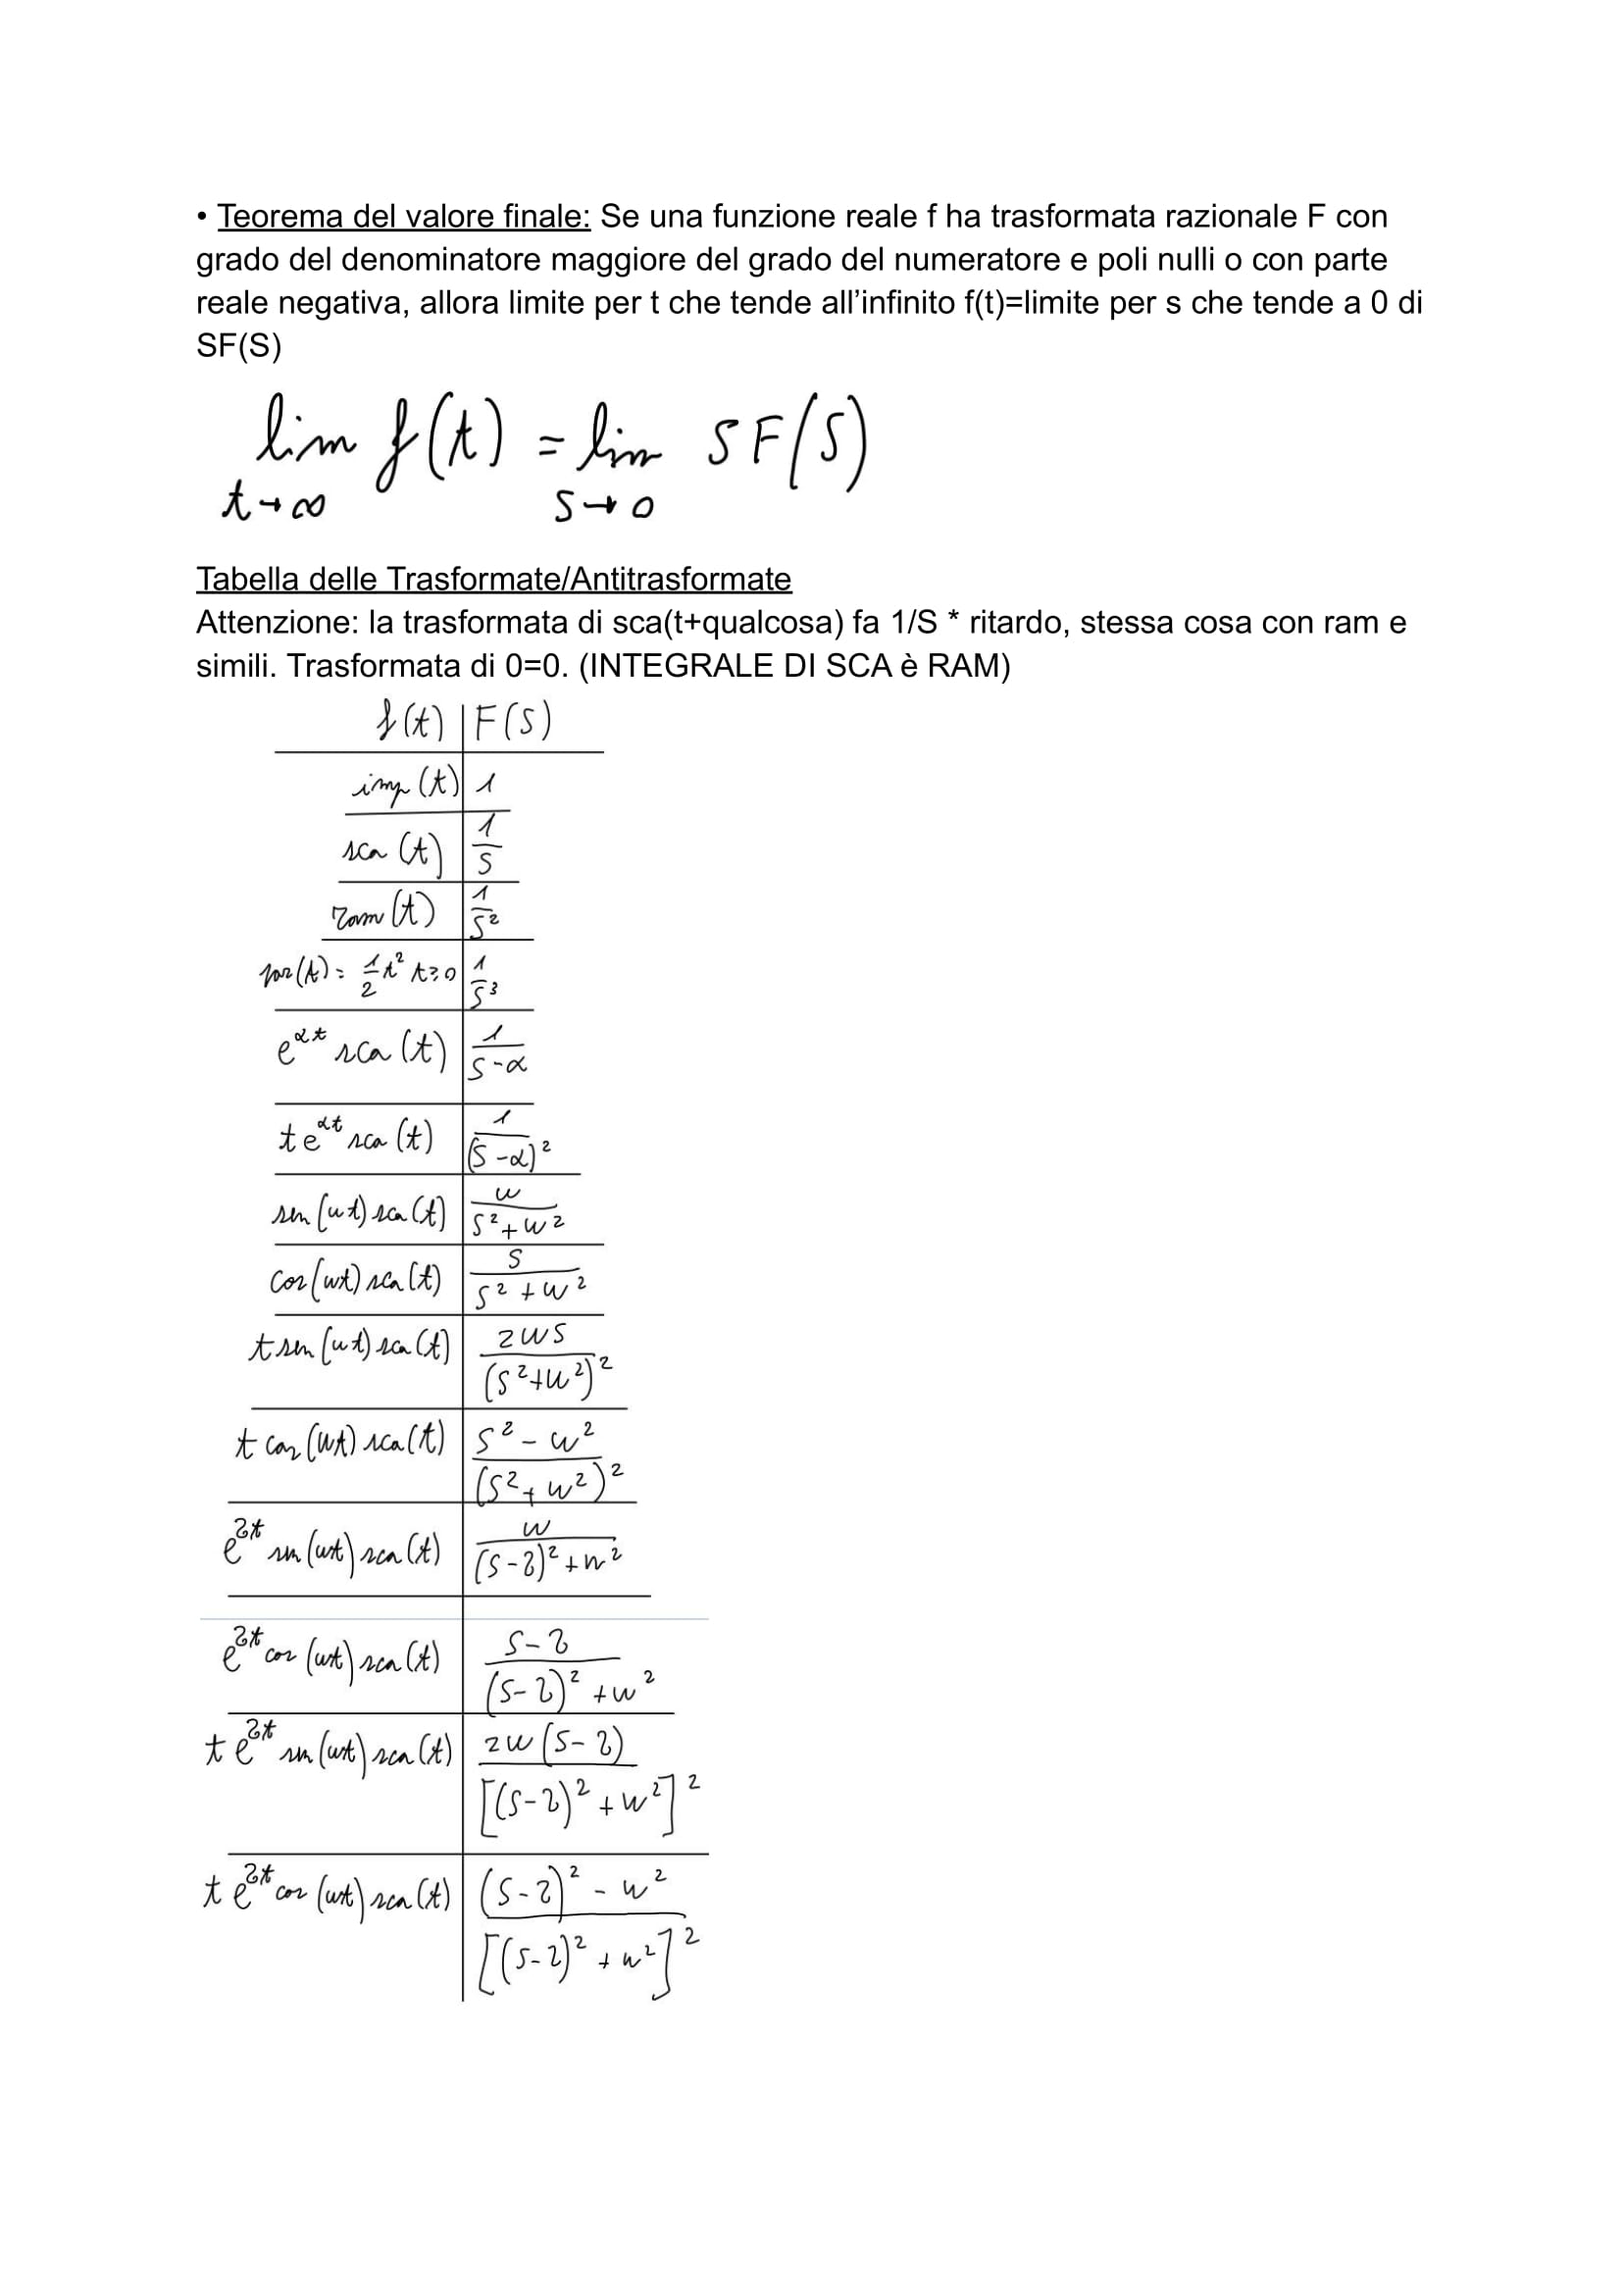 • Teorema del valore finale: Se una funzione reale f ha trasformata razionale F con
grado del denominatore maggiore del grado del numeratore e poli nulli o con parte
reale negativa, allora limite per t che tende all’infinito f(t)=limite per s che tende a 0 di
SF(S)
lim f(t) = lim SF(S)
t→∞ S→0
Tabella delle Trasformate/Antitrasformate
Attenzione: la trasformata di sca(t+qualcosa) fa 1/S * ritardo, stessa cosa con ram e
simili. Trasformata di 0=0. (INTEGRALE DI SCA è RAM)
f(t) | F(S)
imp(t) | 1
sca(t) | 1/S
ram(t) | 1/S²
par(t) = 1/2 t² t≥0 | 1/S³
e^αt sca(t) | 1/(S-α)
t e^αt sca(t) | 1/(S-α)²
sen(ωt) sca(t) | ω/(S²+ω²)
cos(ωt) sca(t) | S/(S²+ω²)
t sen(ωt) sca(t) | 2ωS/(S²+ω²)²
t cos(ωt) sca(t) | (S²-ω²)/(S²+ω²)²
e^2t sin(ωt) sca(t) | ω/((S-2)²+ω²)
e^2t cos(ωt) sca(t) | (S-2)/((S-2)²+ω²)
t e^2t sin(ωt) sca(t) | 2ω(S-2)/[(S-2)²+ω²]²
t e^2t cos(ωt) sca(t) | ((S-2)²-ω²)/[(S-2)²+ω²]²